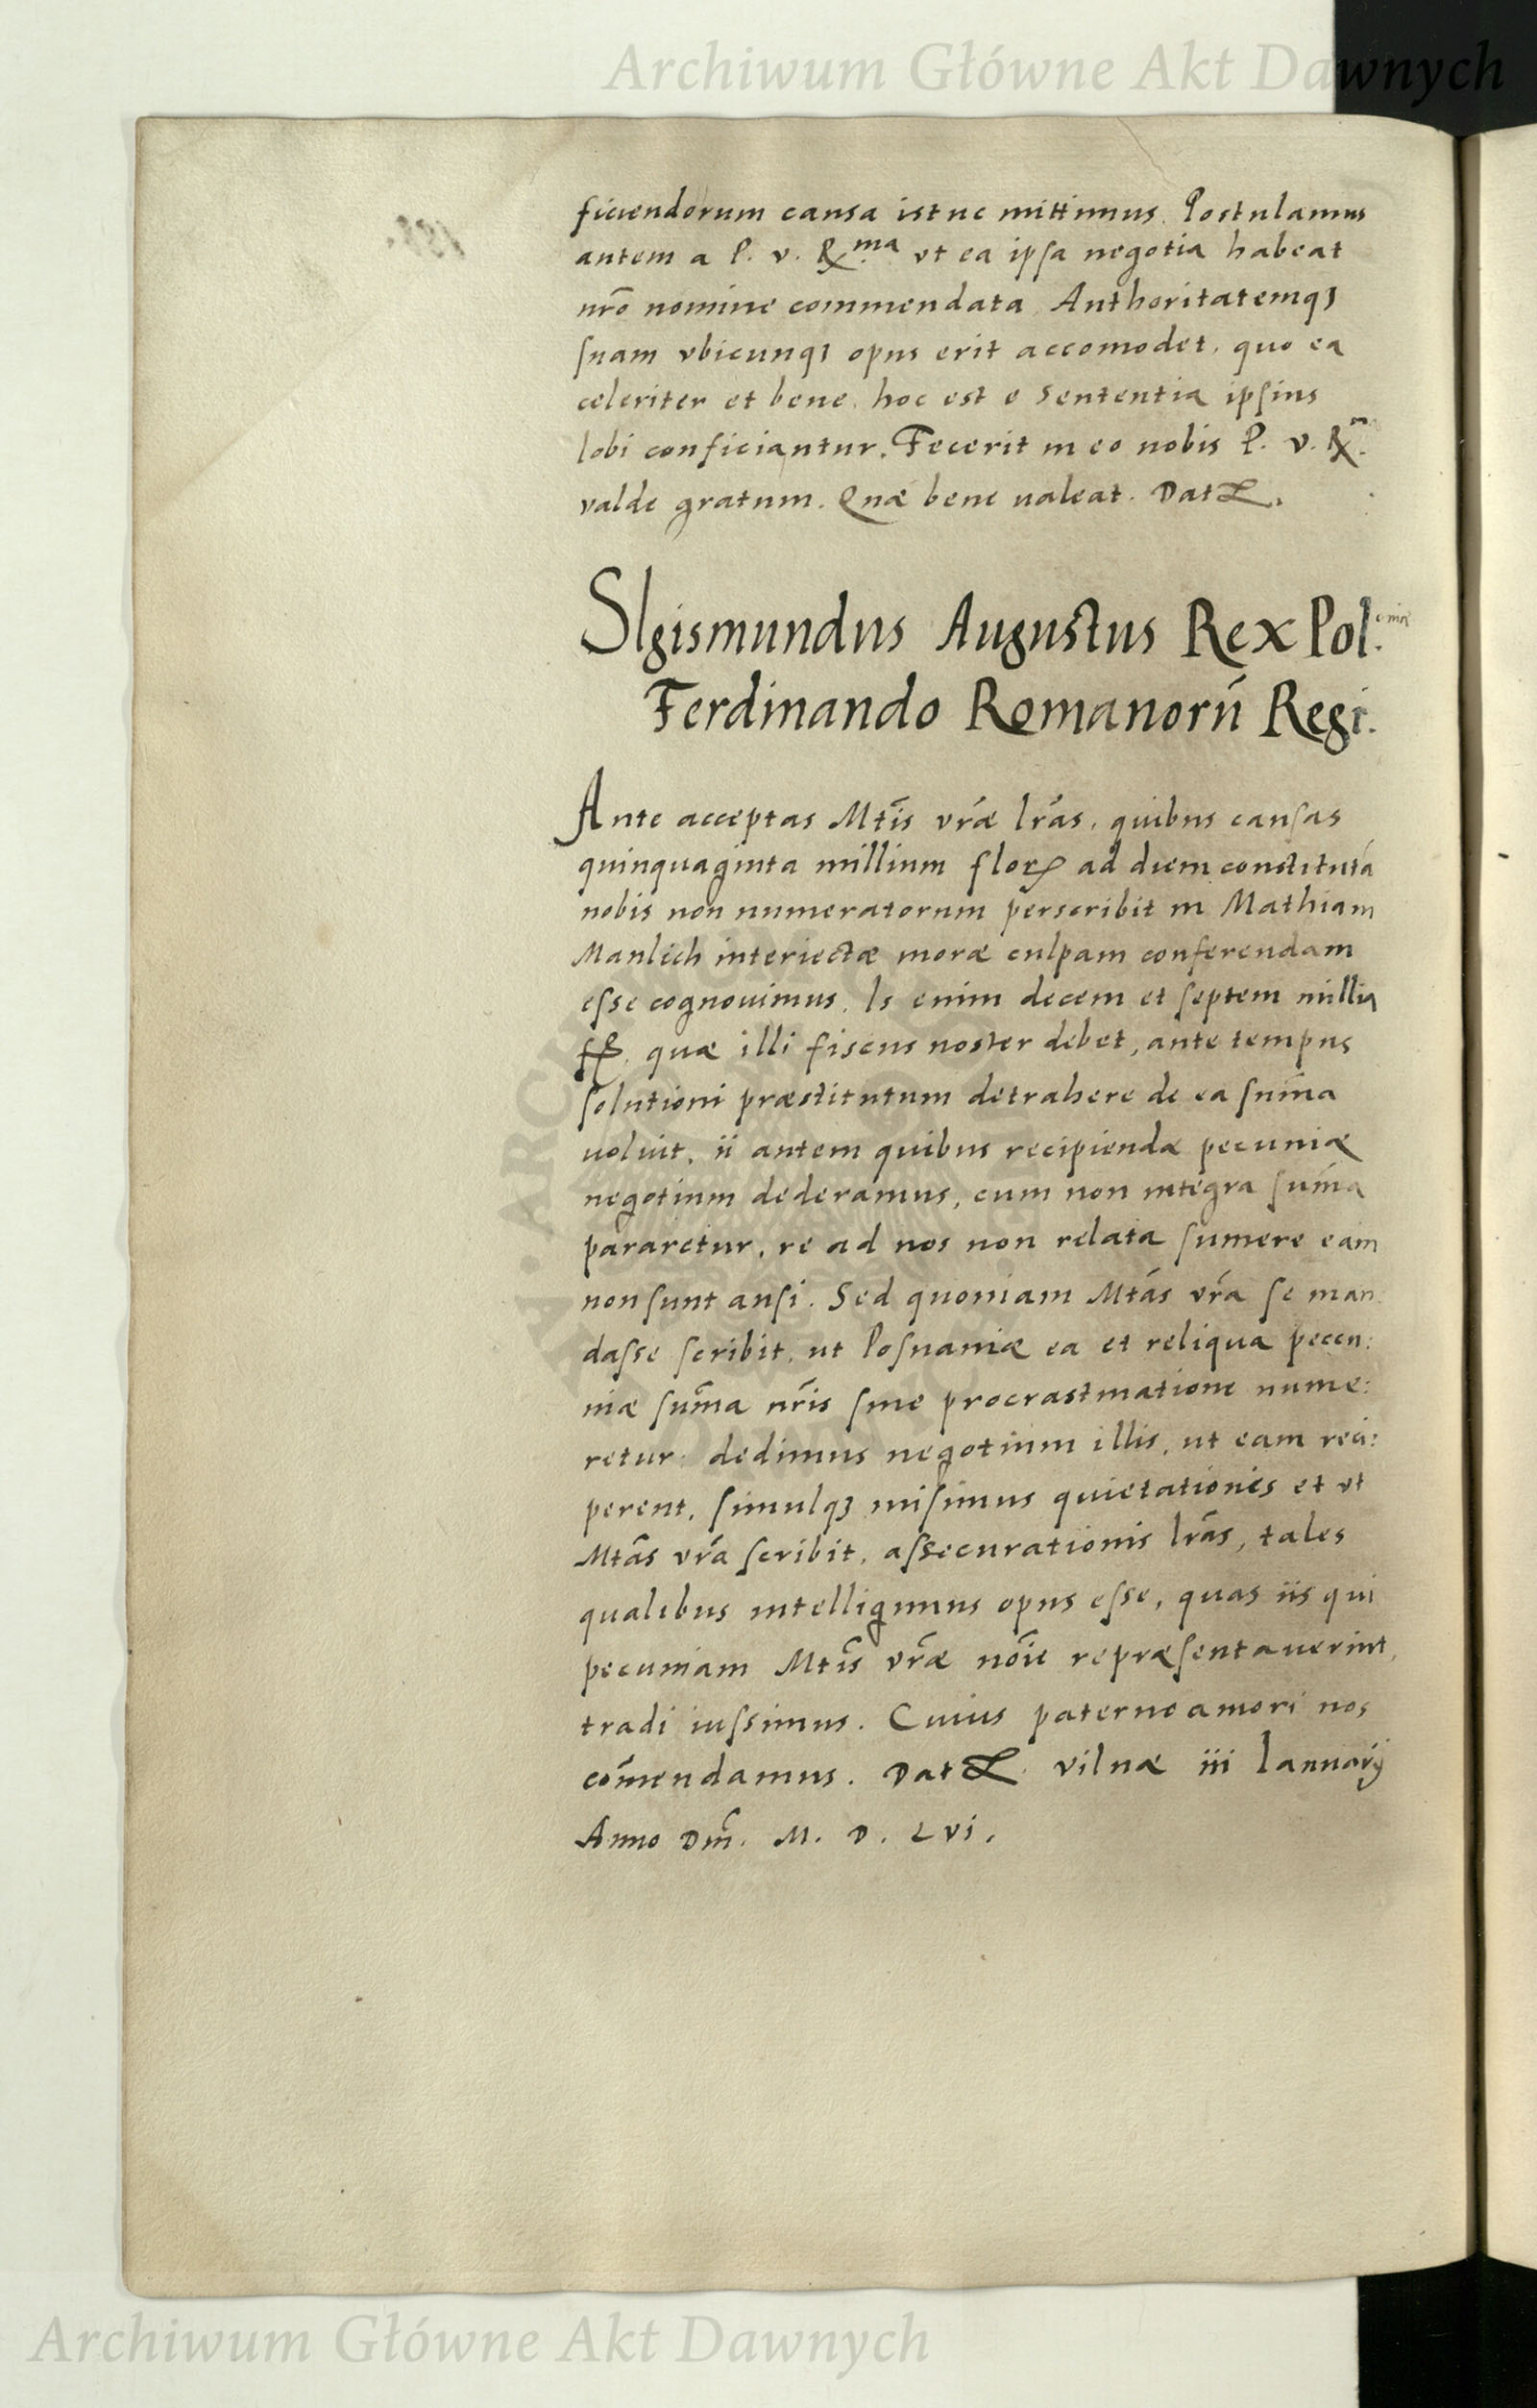 Archiwum Główne Akt Dawnych
ficiendorum causa istuc mittimus. Postulamus
autem a P. v. R.ma vt ea ipsa negotia habeat
nr̃o nomine commendata. Authoritatemqꝫ
suam vbicunqꝫ opus erit accomodet, quo ea
celeriter et bene, hoc est e sententia ipsius
lobi conficiantur. Fecerit in eo nobis P. v. R.
valde gratum. Quæ bene ualeat. Dat
SIgismundus Augustus Rex Pol.
Ferdinando Romanorũ Regi.
Ante acceptas Mtĩs vrãe lrãs, quibus causas
quinquaginta millium florꝝ ad diem constitutã
nobis non numeratorum perscribit in Mathiam
Manlich interiectæ moræ culpam conferendam
esse cognouimus. Is enim decem et septem millia
ff. quæ illi fiscus noster debet, ante tempus
solutioni præstitutum detrahere de ea sum̃a
uoluit, ii autem quibus recipiendæ pecuniæ
negotium dederamus, cum non integra sum̃a
pararetur, re ad nos non relata sumere eam
non sunt ausi. Sed quoniam Mtãs vrã se man:
dasse scribit, ut Posnaniæ ea et reliqua pecu:
niæ sum̃a nrĩs sine procrastinatione nume:
retur: dedimus negotium illis, ut eam reci:
perent, simulqꝫ misimus quietationis et vt
Mtãs vrã scribit, assecurationis lrãs, tales
qualibus intelligimus opus esse, quas iis qui
pecuniam Mtĩs vrãe noĩe repræsentauerint,
tradi iussimus. Cuius paterno amori nos
com̃endamus. Dat Vilnæ iii Ianuarij
Anno Dm̃. M. D. LVi.
Archiwum Główne Akt Dawnych